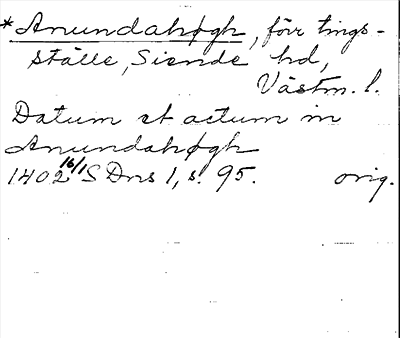 *Anundahøgh, förr tings-
ställe, Siende hd,
Västm. l.
Datum et actum in
Anundahøgh
1402 16/1 S Dns 1, s. 95. orig.